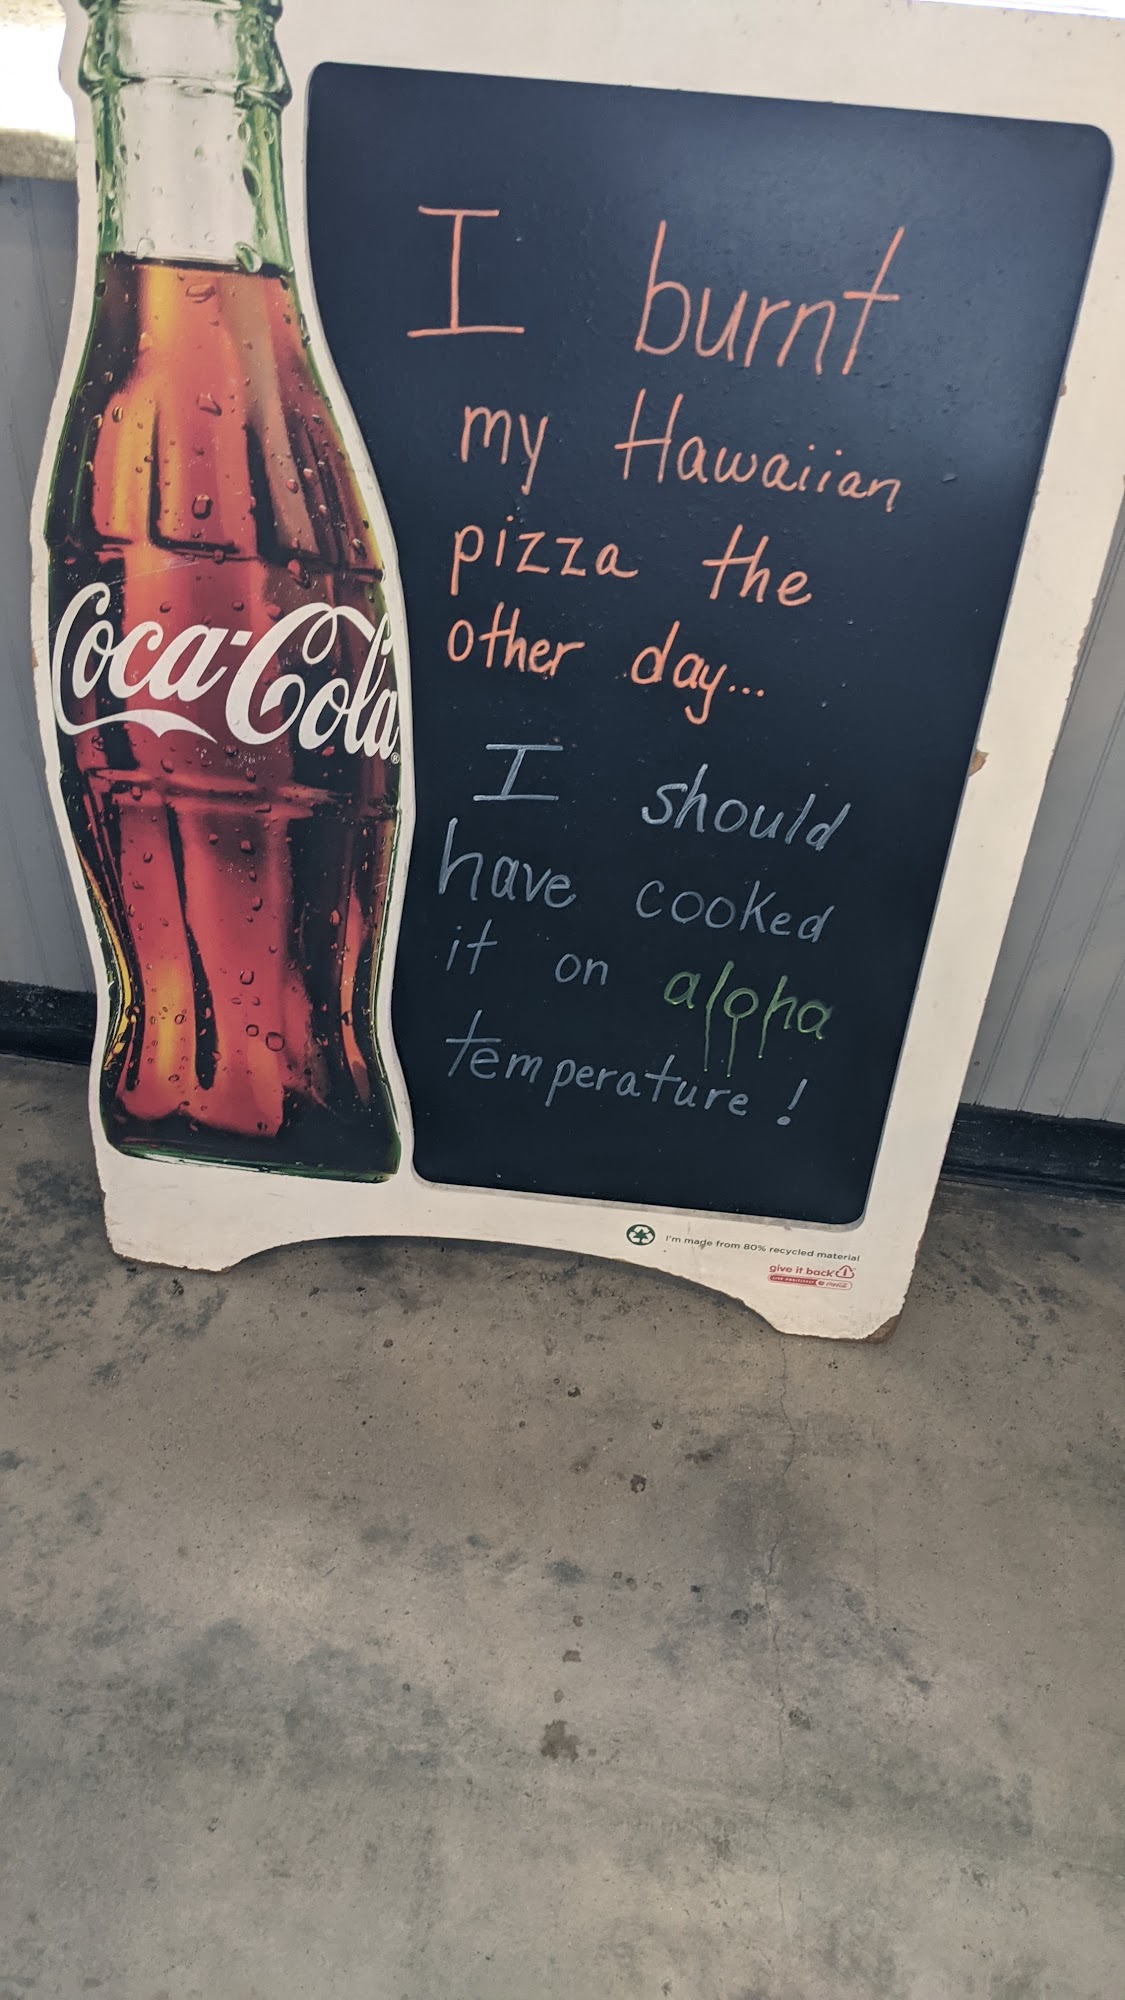 Coca-Cola
I burnt
my Hawaiian
pizza the
other day...
I should
have cooked
it on aloha
temperature!
I'm made from 80% recycled material
give it back